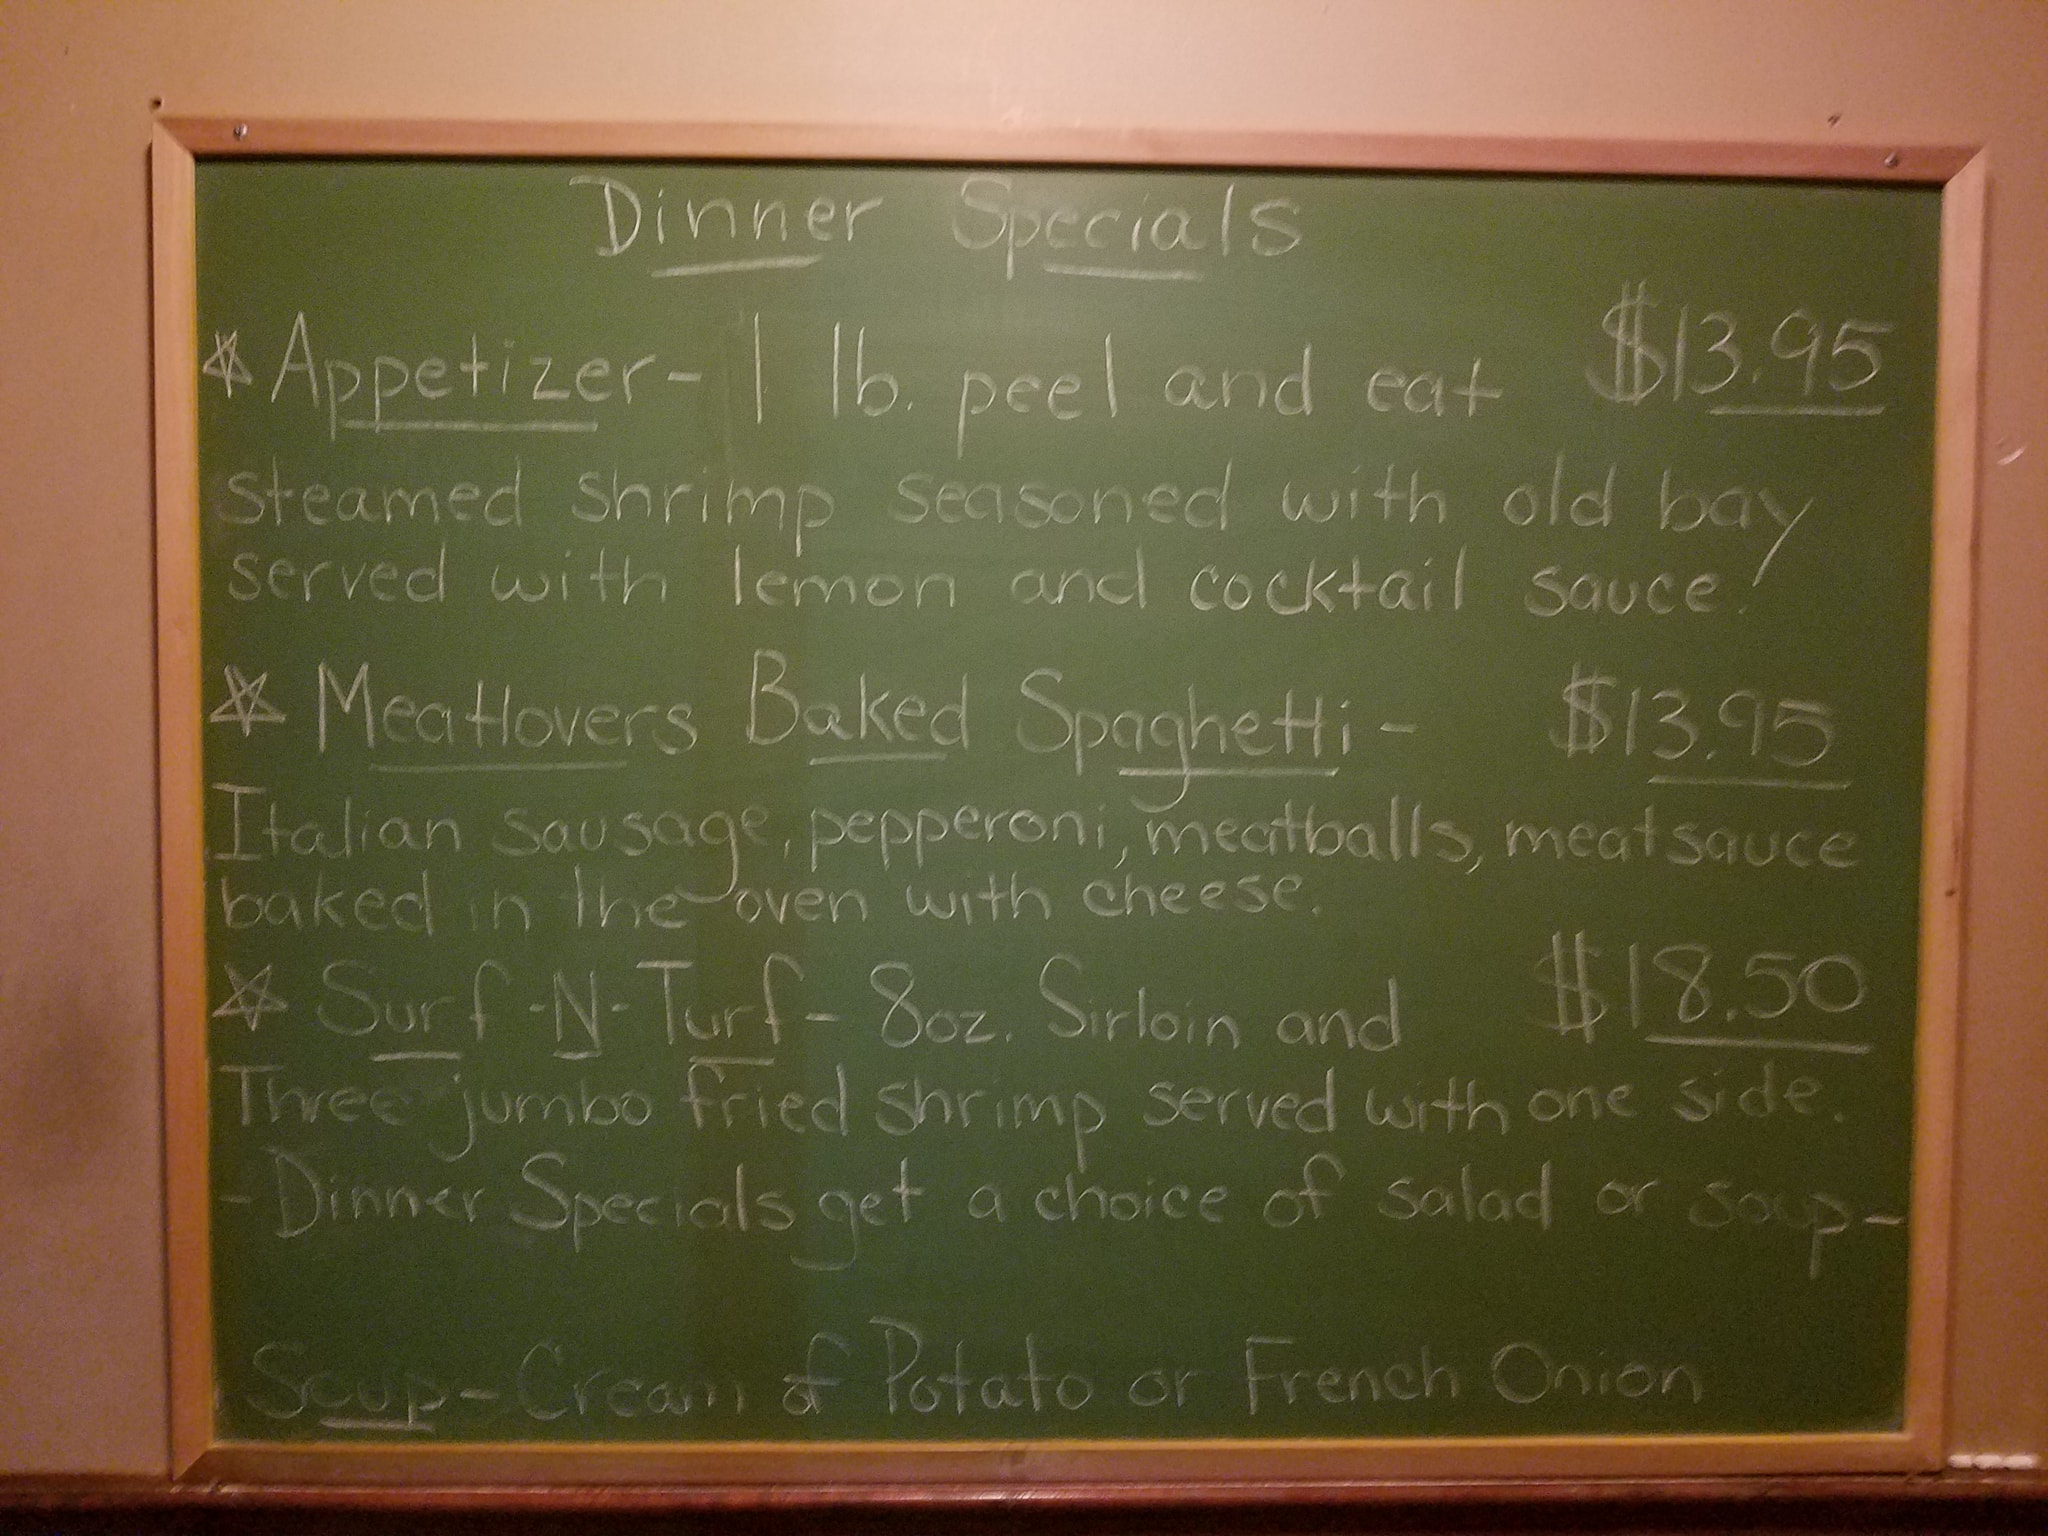 Dinner Specials
☆ Appetizer - 1 lb. peel and eat $13.95
steamed shrimp seasoned with old bay
served with lemon and cocktail sauce!
☆ Meatlovers Baked Spaghetti - $13.95
Italian sausage, pepperoni, meatballs, meatsauce
baked in the oven with cheese.
☆ Surf-N-Turf - 8oz. Sirloin and $18.50
Three jumbo fried shrimp served with one side.
- Dinner Specials get a choice of salad or soup -
Soup - Cream of Potato or French Onion